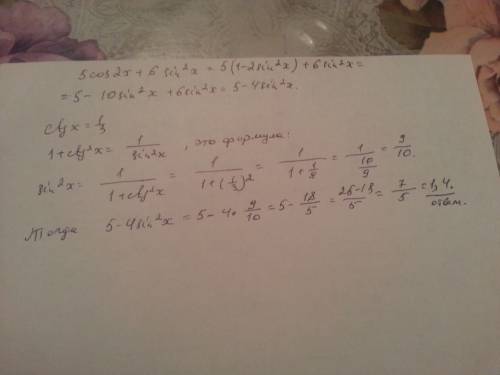 5cos2x + 6 sin²x = 5(1-2sin²x) + 6sin²x =
= 5 - 10sin²x + 6sin²x = 5 - 4sin²x.
ctg x = 1/3
1 + ctg²x = 1/sin²x , это формула:
sin²x = 1/(1+ctg²x) = 1/(1+(1/3)²) = 1/(1+1/9) = 1/(10/9) = 9/10.
Тогда 5-4sin²x = 5-4·9/10 = 5-18/5 = (25-18)/5 = 7/5 = 1,4.
ответ.